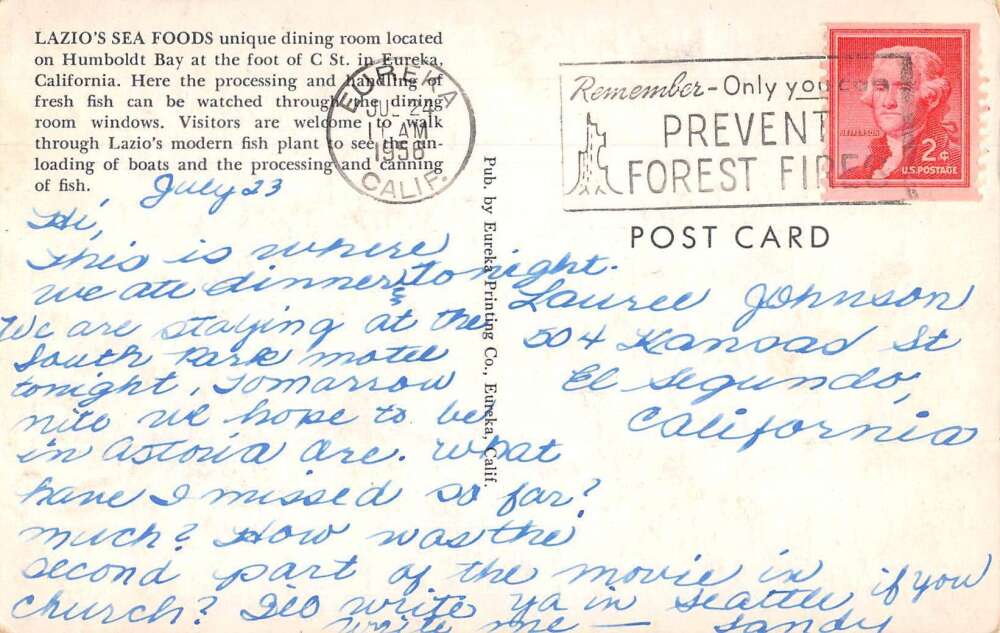 LAZIO'S SEA FOODS unique dining room located
on Humboldt Bay at the foot of C St. in Eureka,
California. Here the processing and handling of
fresh fish can be watched through the dining
room windows. Visitors are welcome to walk
through Lazio's modern fish plant to see the un-
loading of boats and the processing and canning
of fish.
EUREKA
11 AM
CALIF.
Remember - Only you can
PREVENT
FOREST FIRES
JEFFERSON
2¢
U.S. POSTAGE
POST CARD
Pub. by Eureka Printing Co., Eureka, Calif.
July 23
Hi,
This is where
we ate dinner tonight.
We are staying at the
South Park motel
tonight, Tomarrow
nite we hope to be
in Astoria Ore. What
have I missed so far?
much? How was the
second part of the movie in
church? I'll write ya in Seattle if you
write me — Sandy
Lauree Johnson
504 Kansas St
El Segundo,
California